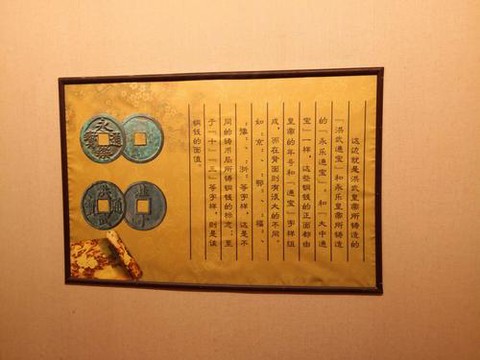 这边就是洪武皇帝所铸造的
“洪武通宝”和永乐皇帝所铸造
的“永乐通宝”。和“大中通
宝”一样，这些铜钱的正面都由
皇帝的年号和“通宝”字样组
成，而在背面则有很大的不同。
如“京”、“鄂”、“福”、
“豫”、“洪”等字样，这是不
同的铸币局所铸铜钱的标志；至
于“十”“三”等字样，则是该
铜钱的面值。
永樂通寳